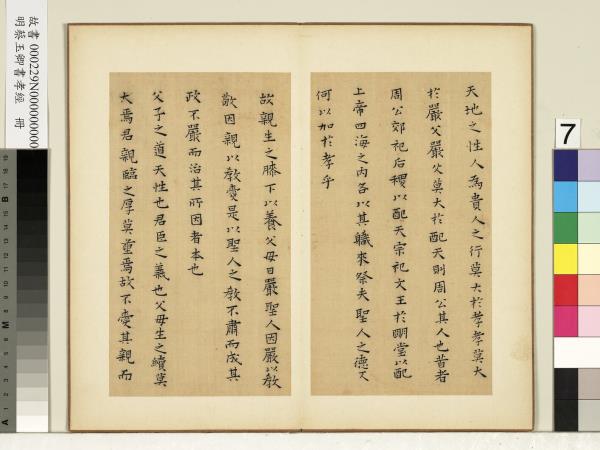 天地之性人為貴人之行莫大於孝孝莫大
於嚴父嚴父莫大於配天則周公其人也昔者
周公郊祀后稷以配天宗祀文王於明堂以配
上帝四海之內各以其職來祭夫聖人之德又
何以加於孝乎
故親生之膝下以養父母日嚴聖人因嚴以教
敬因親以教愛是以聖人之教不肅而成其
政不嚴而治其所因者本也
父子之道天性也君臣之義也父母生之續莫
大焉君親臨之厚莫重焉故不愛其親而
故書 000229N000000000
明蔡玉卿書孝經 冊
7
B
M
A